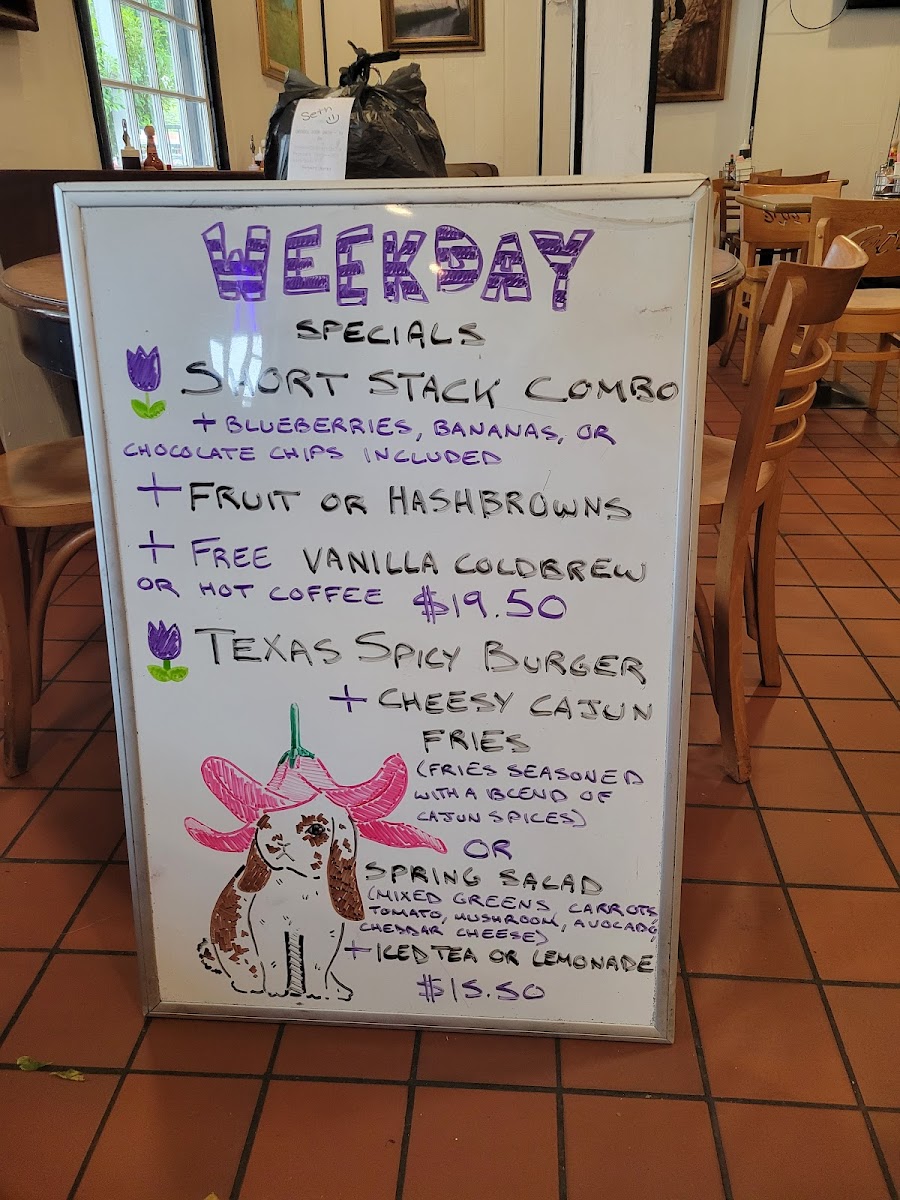 Sem
WEEKDAY
SPECIALS
SHORT STACK COMBO
+ BLUEBERRIES, BANANAS, OR
CHOCOLATE CHIPS INCLUDED
+ FRUIT OR HASHBROWNS
+ FREE VANILLA COLDBREW
OR HOT COFFEE $19.50
TEXAS SPICY BURGER
+ CHEESY CAJUN
FRIES
(FRIES SEASONED
WITH A BLEND OF
CAJUN SPICES)
OR
SPRING SALAD
(MIXED GREENS, CARROTS,
TOMATO, MUSHROOM, AVOCADO,
CHEDDAR CHEESE)
+ ICED TEA OR LEMONADE
$15.50